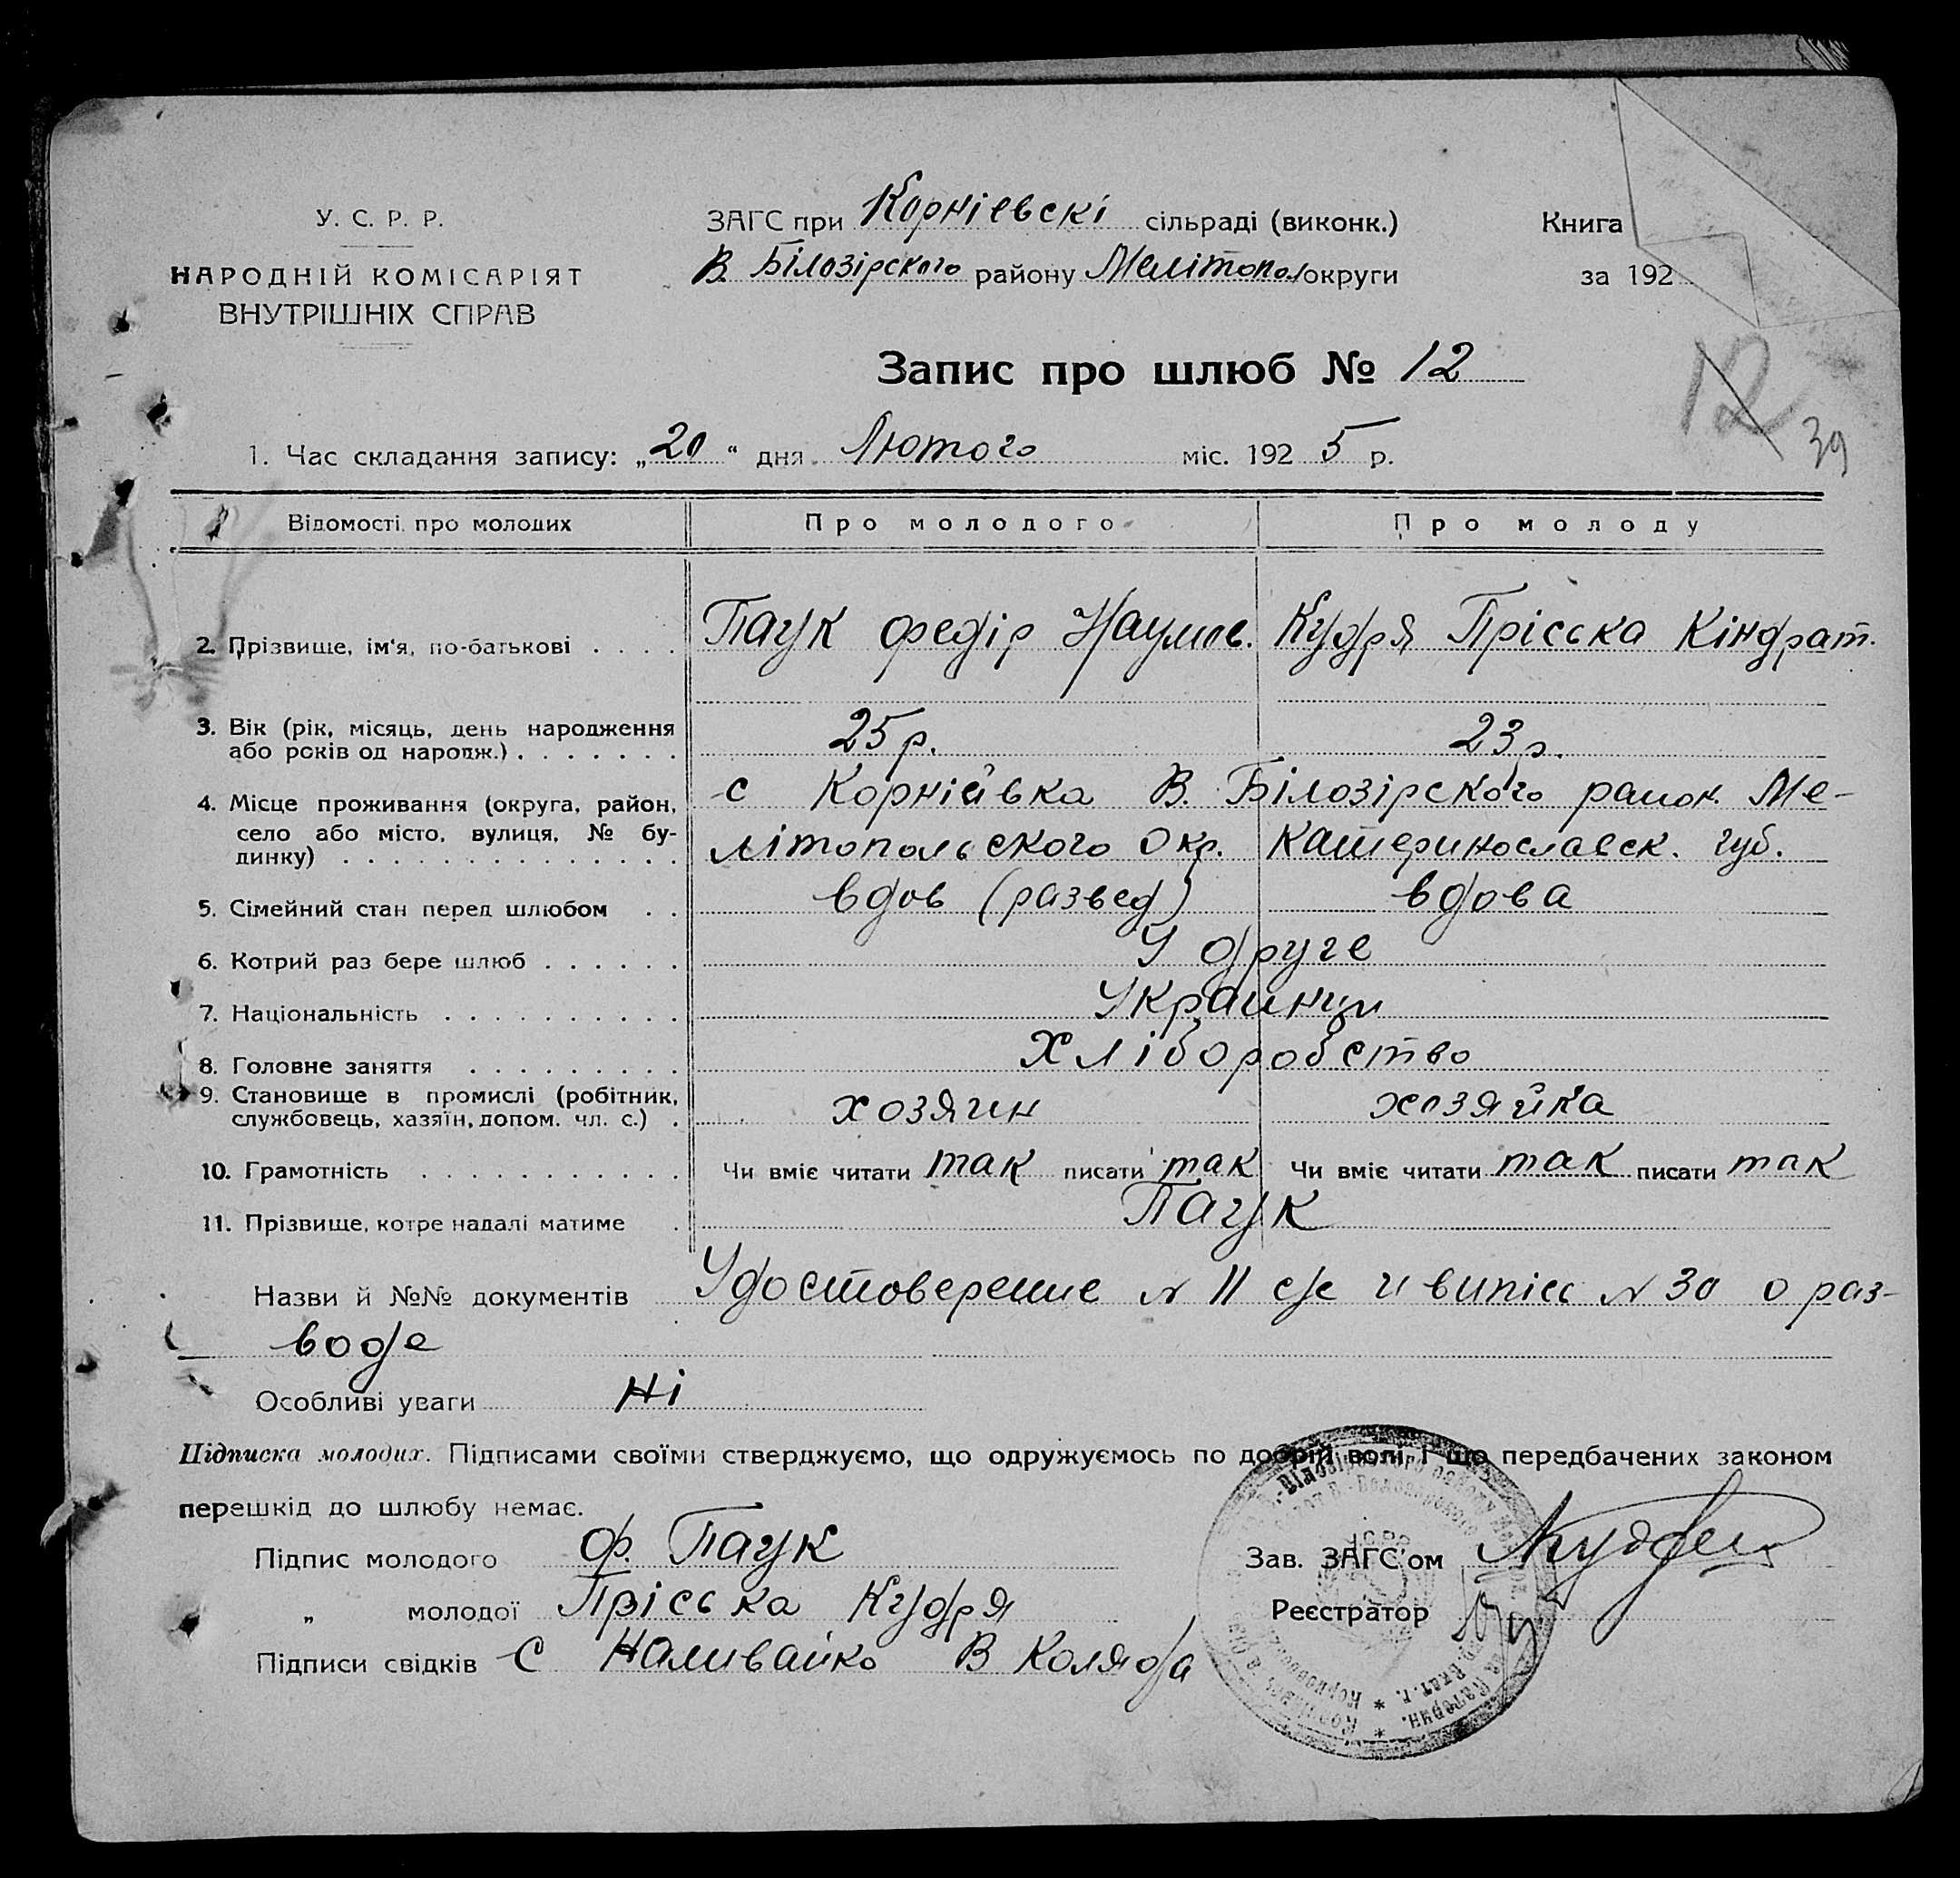 У. С. Р. Р.
НАРОДНІЙ КОМІСАРІЯТ
ВНУТРІШНІХ СПРАВ
ЗАГС при Корніевскі сільраді (виконк.)
В. Білозірского району Мелітопол округи
Книга
за 192
Запис про шлюб № 12
12
39
1. Час складання запису: „20“ дня Лютого міс. 1925 р.
Відомості про молодих Про молодого Про молоду
2. Прізвище, ім'я, по-батькові . . . . Паук Федір Наумов. Кудря Пріська Кіндрат.
3. Вік (рік, місяць, день народження
або років од народж.) . . . . . . . 25 р. 23 р.
4. Місце проживання (округа, район, с Корніівка В. Білозірского район. Ме-
село або місто, вулиця, № бу-
динку) . . . . . . . . . . . . . . літопольского Окр. Катеринославск. губ.
5. Сімейний стан перед шлюбом . . вдов (развед) вдова
6. Котрий раз бере шлюб . . . . . . У друге
7. Національність . . . . . . . . . . Украинци
8. Головне заняття . . . . . . . . . Хліборобство
9. Становище в промислі (робітник,
службовець, хазяїн, допом. чл. с.) . хозяин хозяйка
10. Грамотність . . . . . . . . . . . Чи вміє читати так писати так Чи вміє читати так писати так
11. Прізвище, котре надалі матиме . Паук
Назви й №№ документів Удостоверение N 11 с/с и випіс N 30 о раз-
воде
Особливі уваги Ні
Підписка молодих. Підписами своїми стверджуємо, що одружуємось по добрій волі, і що передбачених законом
перешкід до шлюбу немає.
Підпис молодого Ф. Паук
Зав. ЗАГС'ом
„ молодої Пріська Кудря
Реєстратор
Підписи свідків С Наливайко В Коляда